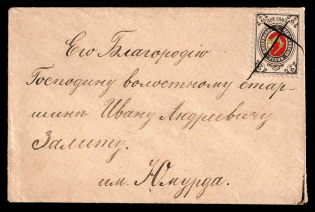 Его Благородію
Господину волостному стар-
шинѣ Ивану Андреевичу
Залиту.
им. Юмурда.